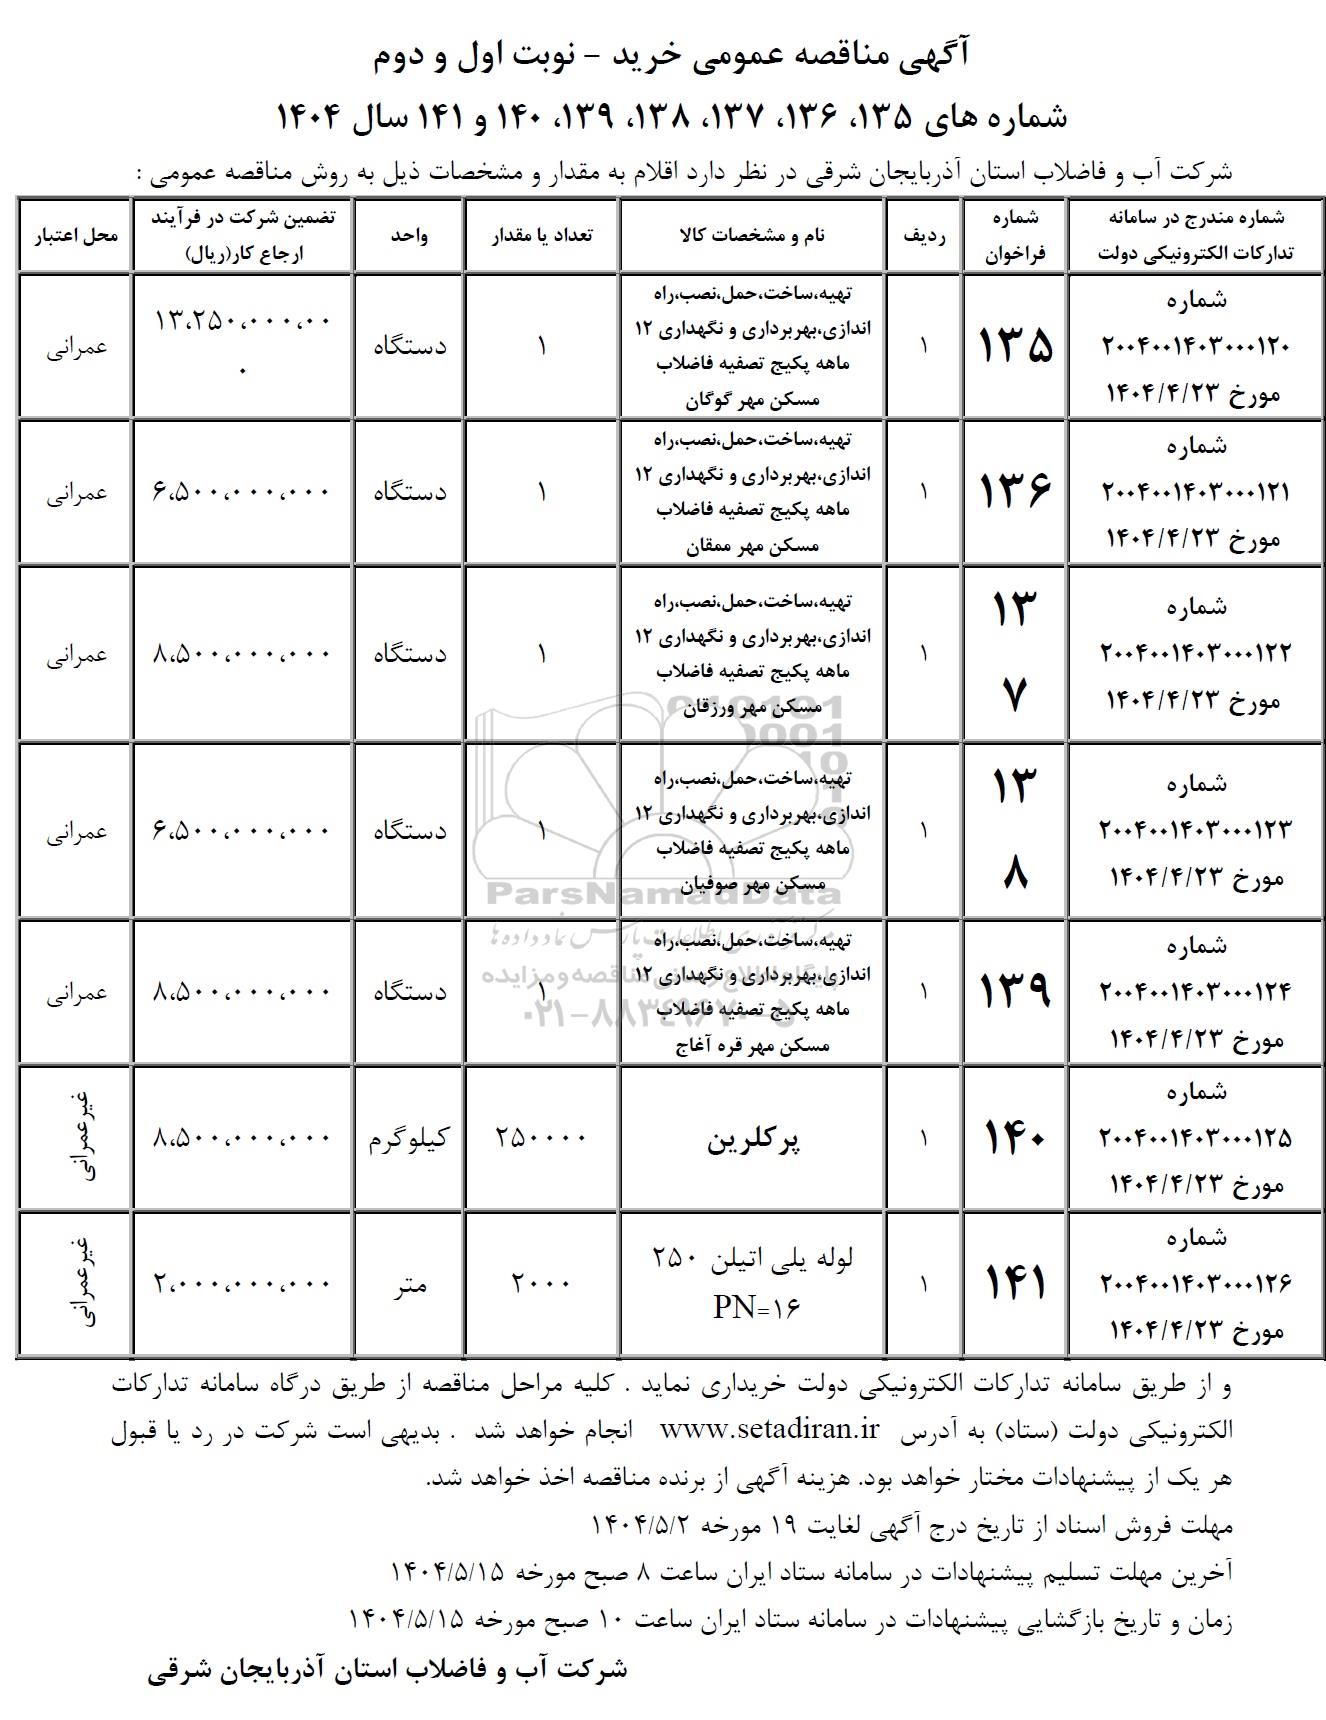 آگهی مناقصه عمومی خرید – نوبت اول و دوم
شماره های ۱۳۵، ۱۳۶، ۱۳۷، ۱۳۸، ۱۳۹، ۱۴۰ و ۱۴۱ سال ۱۴۰۴
شرکت آب و فاضلاب استان آذربایجان شرقی در نظر دارد اقلام به مقدار و مشخصات ذیل به روش مناقصه عمومی :
شماره مندرج در سامانه
تدارکات الکترونیکی دولت
شماره
فراخوان
ردیف
نام و مشخصات کالا
تعداد یا مقدار
واحد
تضمین شرکت در فرآیند
ارجاع کار(ریال)
محل اعتبار
شماره
۲۰۰۴۰۰۱۴۰۳۰۰۰۱۲۰
مورخ ۱۴۰۴/۴/۲۳
۱۳۵
۱
تهیه،ساخت،حمل،نصب،راه
اندازی،بهربرداری و نگهداری ۱۲
ماهه پکیج تصفیه فاضلاب
مسکن مهر گوگان
۱
دستگاه
۱۳،۲۵۰،۰۰۰،۰۰
۰
عمرانی
شماره
۲۰۰۴۰۰۱۴۰۳۰۰۰۱۲۱
مورخ ۱۴۰۴/۴/۲۳
۱۳۶
۱
تهیه،ساخت،حمل،نصب،راه
اندازی،بهربرداری و نگهداری ۱۲
ماهه پکیج تصفیه فاضلاب
مسکن مهر ممقان
۱
دستگاه
۶،۵۰۰،۰۰۰،۰۰۰
عمرانی
شماره
۲۰۰۴۰۰۱۴۰۳۰۰۰۱۲۲
مورخ ۱۴۰۴/۴/۲۳
۱۳
۷
۱
تهیه،ساخت،حمل،نصب،راه
اندازی،بهربرداری و نگهداری ۱۲
ماهه پکیج تصفیه فاضلاب
مسکن مهر ورزقان
۱
دستگاه
۸،۵۰۰،۰۰۰،۰۰۰
عمرانی
شماره
۲۰۰۴۰۰۱۴۰۳۰۰۰۱۲۳
مورخ ۱۴۰۴/۴/۲۳
۱۳
۸
۱
تهیه،ساخت،حمل،نصب،راه
اندازی،بهربرداری و نگهداری ۱۲
ماهه پکیج تصفیه فاضلاب
مسکن مهر صوفیان
۱
دستگاه
۶،۵۰۰،۰۰۰،۰۰۰
عمرانی
ParsNamadData
پایگاه اطلاع رسانی مناقصه و مزایده
۰۲۱-۸۸۳۴۹۶۷۰-۵
شماره
۲۰۰۴۰۰۱۴۰۳۰۰۰۱۲۴
مورخ ۱۴۰۴/۴/۲۳
۱۳۹
۱
تهیه،ساخت،حمل،نصب،راه
اندازی،بهربرداری و نگهداری ۱۲
ماهه پکیج تصفیه فاضلاب
مسکن مهر قره آغاج
۱
دستگاه
۸،۵۰۰،۰۰۰،۰۰۰
عمرانی
شماره
۲۰۰۴۰۰۱۴۰۳۰۰۰۱۲۵
مورخ ۱۴۰۴/۴/۲۳
۱۴۰
۱
پرکلرین
۲۵۰۰۰۰
کیلوگرم
۸،۵۰۰،۰۰۰،۰۰۰
غیرعمرانی
شماره
۲۰۰۴۰۰۱۴۰۳۰۰۰۱۲۶
مورخ ۱۴۰۴/۴/۲۳
۱۴۱
۱
لوله پلی اتیلن ۲۵۰
PN=۱۶
۲۰۰۰
متر
۲،۰۰۰،۰۰۰،۰۰۰
غیرعمرانی
و از طریق سامانه تدارکات الکترونیکی دولت خریداری نماید . کلیه مراحل مناقصه از طریق درگاه سامانه تدارکات
الکترونیکی دولت (ستاد) به آدرس www.setadiran.ir انجام خواهد شد . بدیهی است شرکت در رد یا قبول
هر یک از پیشنهادات مختار خواهد بود. هزینه آگهی از برنده مناقصه اخذ خواهد شد.
مهلت فروش اسناد از تاریخ درج آگهی لغایت ۱۹ مورخه ۱۴۰۴/۵/۲
آخرین مهلت تسلیم پیشنهادات در سامانه ستاد ایران ساعت ۸ صبح مورخه ۱۴۰۴/۵/۱۵
زمان و تاریخ بازگشایی پیشنهادات در سامانه ستاد ایران ساعت ۱۰ صبح مورخه ۱۴۰۴/۵/۱۵
شرکت آب و فاضلاب استان آذربایجان شرقی